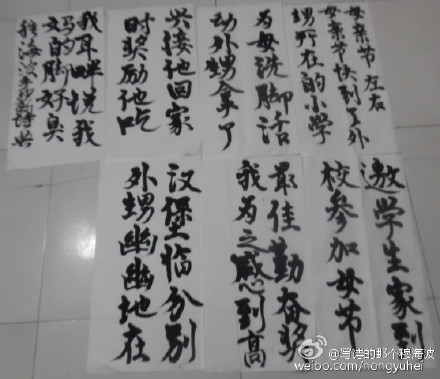 母亲节 左右
母亲节快到了外
甥所在的小学
邀学生家到
校参加母节
为母洗脚活
动外甥拿了
最佳勤奋奖
我为之感到高
兴接他回家
时奖励他吃
汉堡临分别
外甥幽幽地在
我耳畔说我
妈的脚好臭
海波
@写诗的那个穆海波
weibo.com/nongyuhei